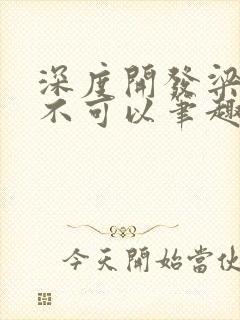 深度開發梁
不可以筆趣
今天開始當伙